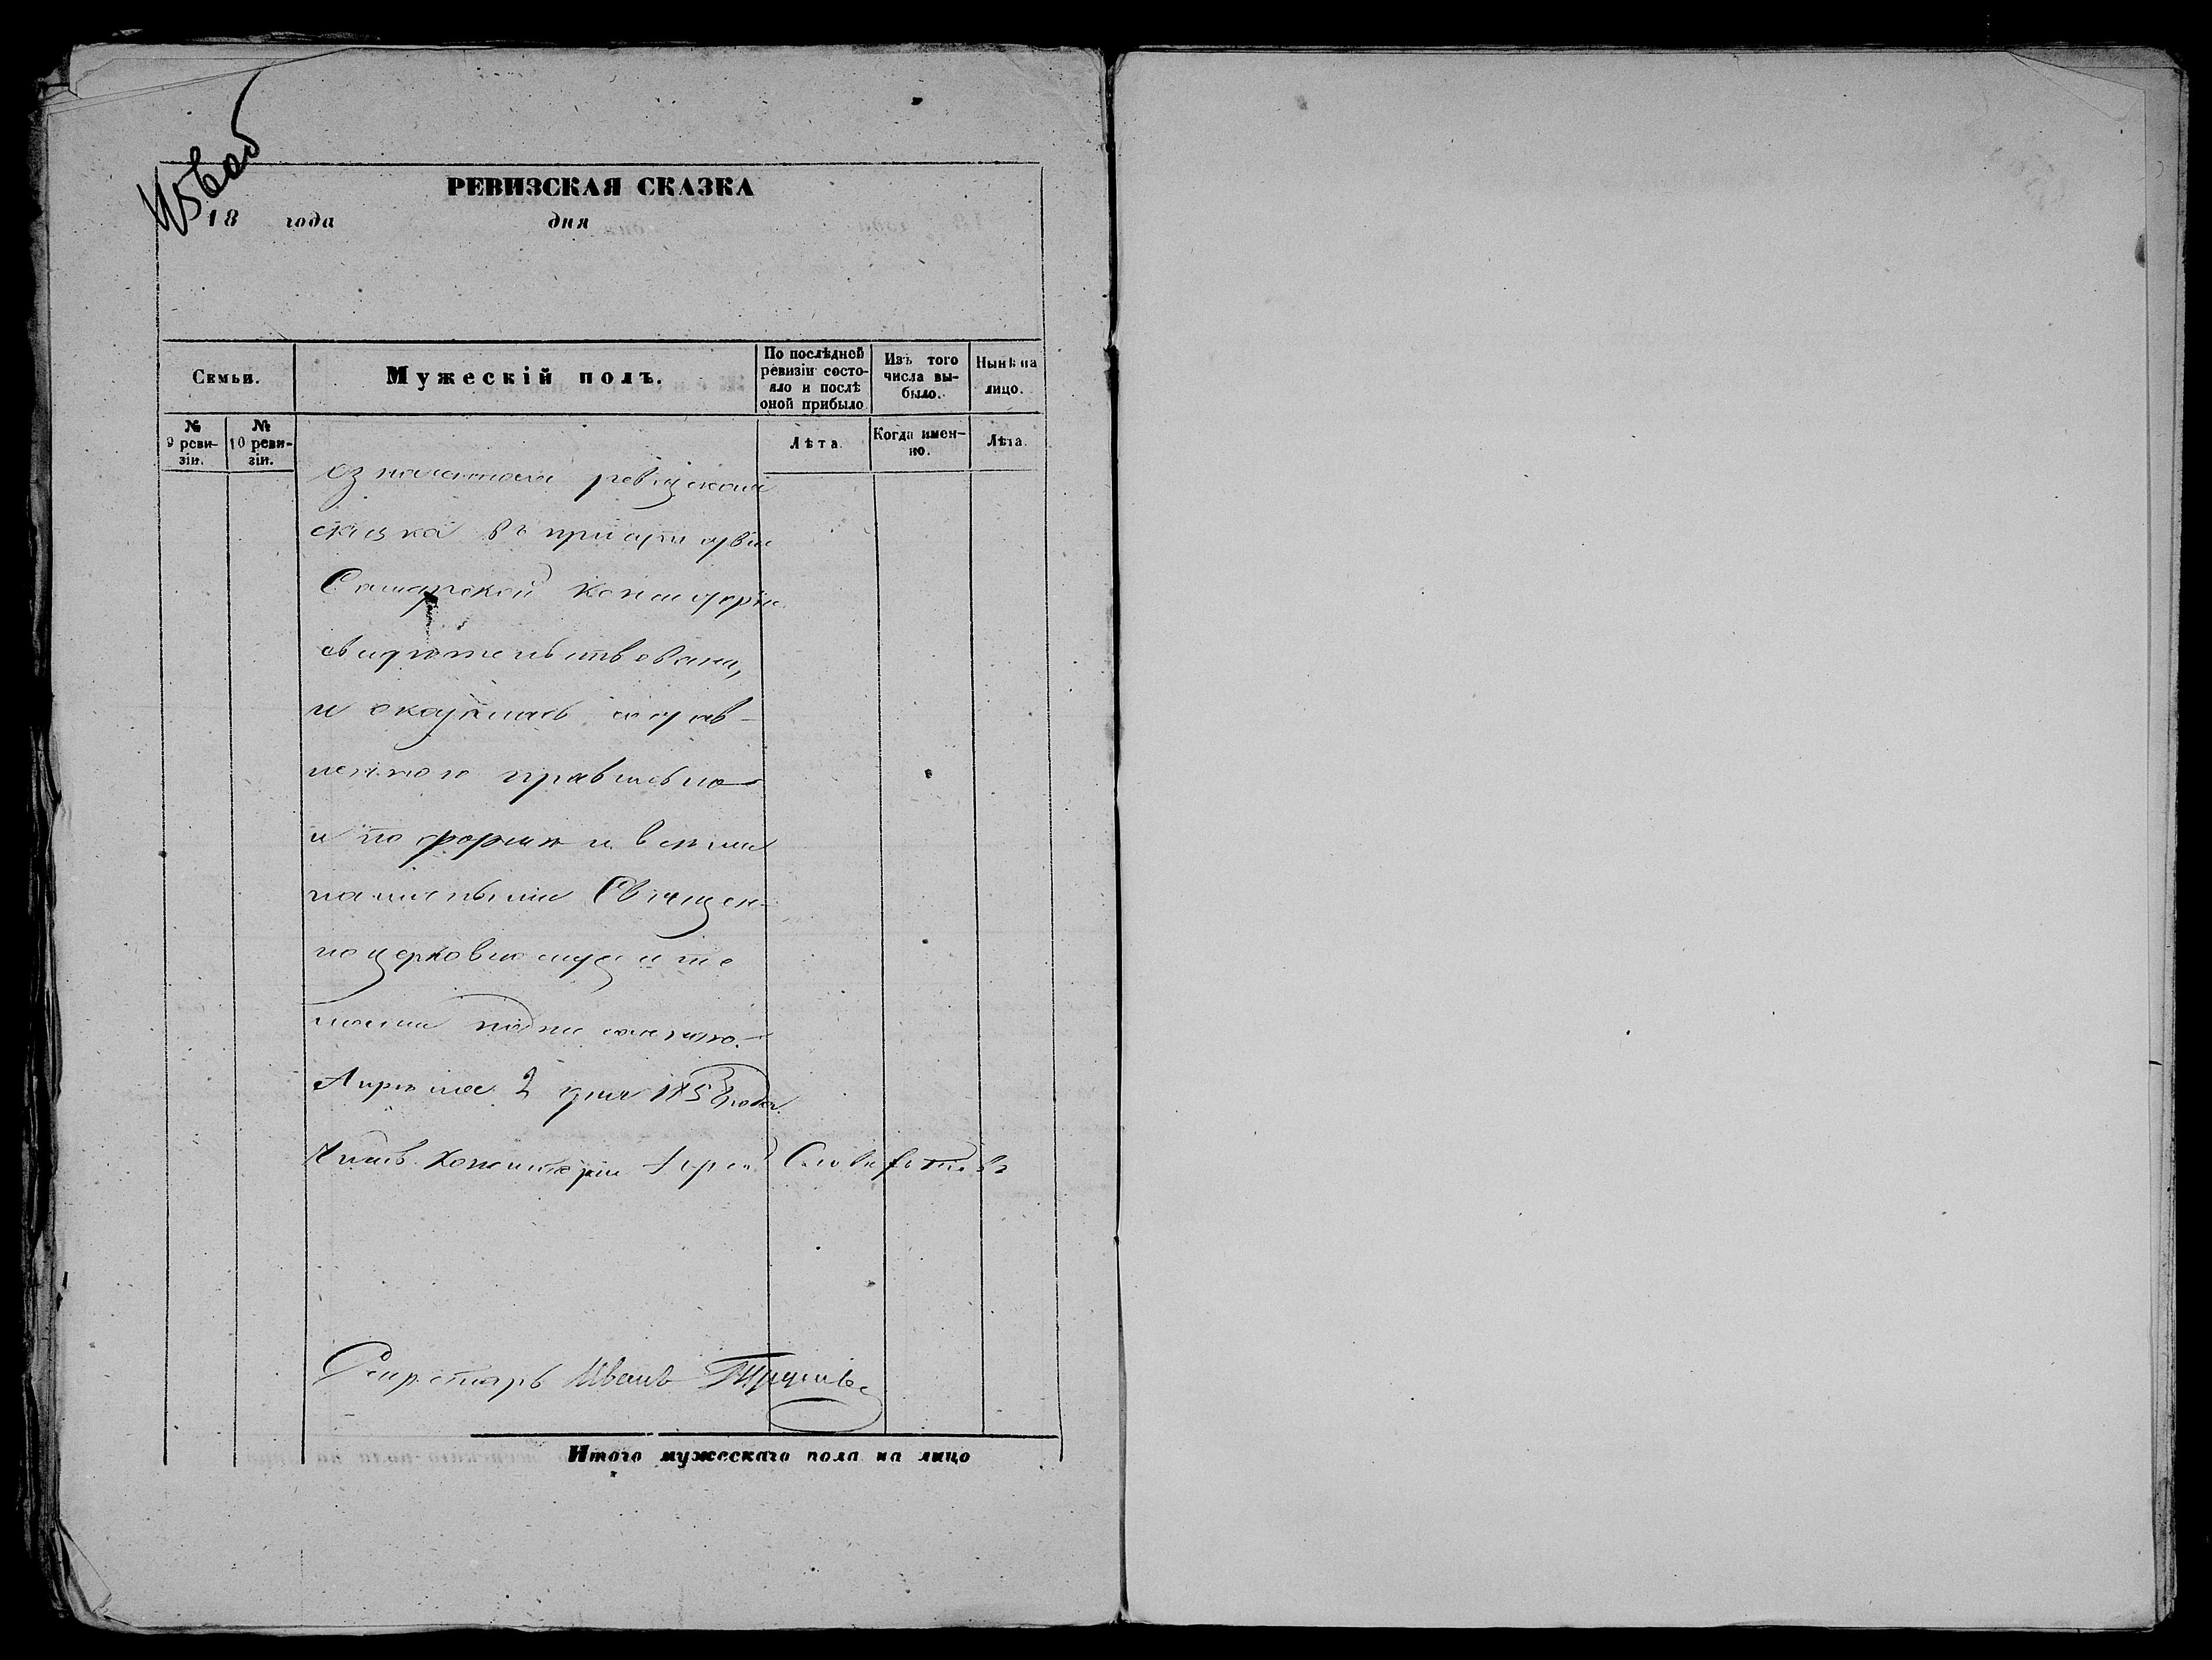 РЕВИЗСКАЯ СКАЗКА
18 года дня
Семьи.
Мужескій полъ.
По послѣдней ревизіи состояло и послѣ оной прибыло
Изъ того числа выбыло.
Нынѣ на лицо.
№ 9 ревизіи.
№ 10 ревизіи.
Лѣта.
Когда именно.
Лѣта.
Означенная ревизская
сказка въ присутствіи
Самарской Консисторіи
свидѣтельствована,
и оказалась состав-
ленною правильно
и по формѣ и всѣми
наличными Священ-
ноцерковнослужите
лями подписанною.
Апрѣля 2 дня 1858 года.
Членъ Консисторіи
Секретарь Иванъ
Итого мужескаго пола на лицо